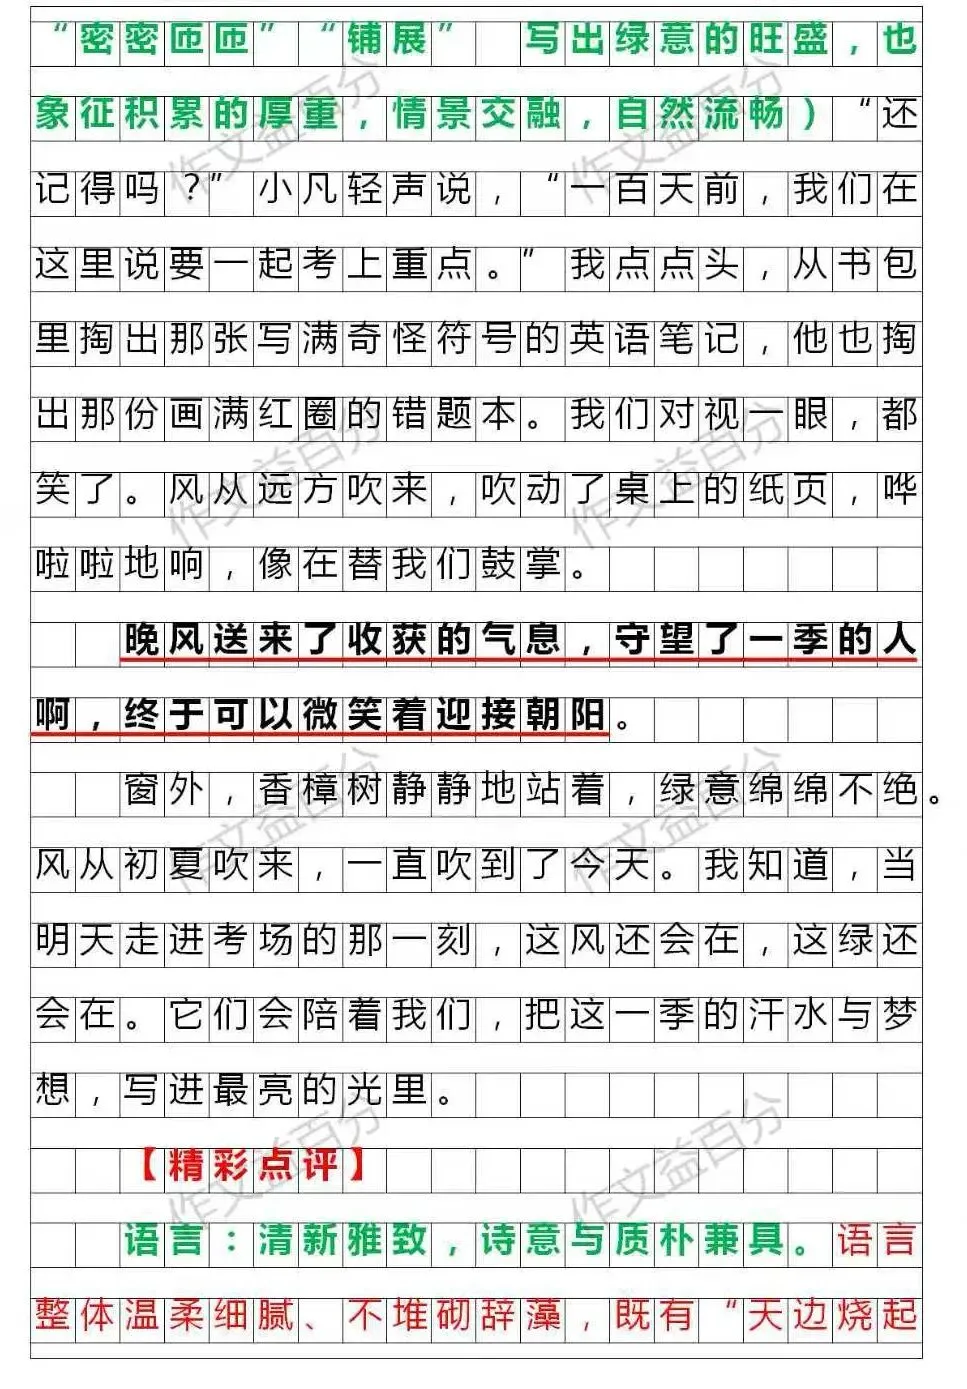 “密密匝匝”“铺展” 写出绿意的旺盛，也
象征积累的厚重，情景交融，自然流畅）“还
记得吗？”小凡轻声说，“一百天前，我们在
这里说要一起考上重点。”我点点头，从书包
里掏出那张写满奇怪符号的英语笔记，他也掏
出那份画满红圈的错题本。我们对视一眼，都
笑了。风从远方吹来，吹动了桌上的纸页，哗
啦啦地响，像在替我们鼓掌。
晚风送来了收获的气息，守望了一季的人
啊，终于可以微笑着迎接朝阳。
窗外，香樟树静静地站着，绿意绵绵不绝。
风从初夏吹来，一直吹到了今天。我知道，当
明天走进考场的那一刻，这风还会在，这绿还
会在。它们会陪着我们，把这一季的汗水与梦
想，写进最亮的光里。
【精彩点评】
语言：清新雅致，诗意与质朴兼具。语言
整体温柔细腻、不堆砌辞藻，既有“天边烧起
作文益百分
作文益百分
作文益百分
作文益百分
作文益百分
作文益百分
作文益百分
作文益百分